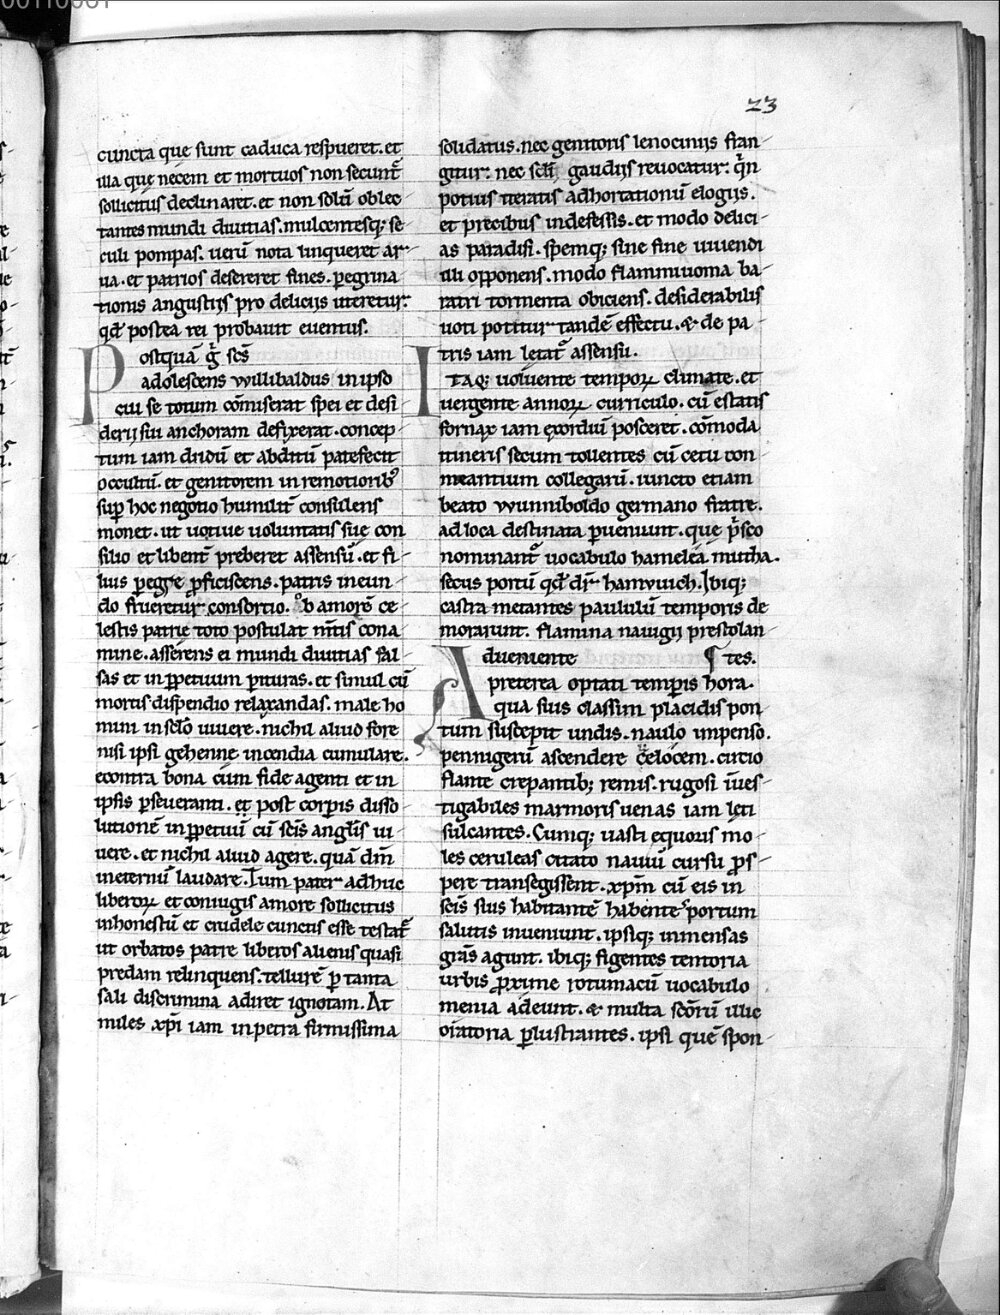 23
cuncta que sunt caduca respueret. et
illa que necem et mortuos non secunt᷑
sollicitus declinaret. et non solū oblec
tantes mundi diuitias. mulcentesq; se
culi pompas. uerū nota linqueret ar
ua. et patrios desereret fines. pegrina
tionis angustiis pro deliciis uteretur.
qđ postea rei probauit euentus.
Postquā g̃ scs̄
adolescens vvillibaldus in ipso
cui se totum cōmiserat spei et desi
derii sui anchoram defixerat. concep
tum iam dudū et abditū patefecit
occultū. et genitorem in remotiorib᷒
sup hoc negotio humilit̄ consulens
monet. ut uotiue uoluntatis sue con
silio et libent̄ preberet assensū. et fi
lius peg̃re ꝓficiscens. patris iocun
do frueretur consortio. Ob amorē ce
lestis patrie toto postulat mt̄is cona
mine. asserens ei mundi diuitias fal
sas et in ꝑpetuum ꝑituras. et simul cū
mortis dispendio relaxandas. male ho
mini in sclo uiuere. nichil aliud fore
nisi ipsi gehenne incendia cumulare.
econtra bona cum fide agenti et in
ipsis ꝑseueranti. et post corꝑis disso
lutionē in ꝑpetuū cū scis anglis ui
uere. et nichil aliud agere. quā dm̄
in eternū laudare. Tum pater adhuc
liberoꝝ et coniugis amore sollicitus
inhonestū et crudele cunctis esse testat᷑
ut orbatos patre liberos alienis quasi
predam relinquens. tellurē ꝑ tanta
sali discrimina adiret ignotam. At
miles xp̄i iam in petra firmissima
solidatus. nec genitoris lenociniis fran
gitur. nec scl̄i gaudiis reuocatur. q̃n
potius iteratis adhortationū elogiis.
et precibus indefessis. et modo delici
as paradisi. spemq; sine fine uiuendi
illi opponens. modo flammiuoma ba
ratri tormenta obiciens. desiderabilis
uoti potitur tandē effectu. & de pa
tris iam letat᷑ assensu.
ITAQ; uoluente temporꝝ climate. et
uergente annorꝝ curriculo. cū estatis
fornax iam exordiū posceret. cōmoda
itineris secum tollentes cū cetu con
meantium collegarū. iuncto etiam
beato vvunniboldo germano fratre.
ad loca destinata ꝑueniunt. que p̃sco
nominant᷑ uocabulo hamelea mutha.
secus portū qđ dr̄ hamvvich. Ibiq;
castra metantes paululū temporis de
morarunt. flamina nauigii prestolan
Adueniente ¶ tes.
preterea optati temꝑis hora.
qua suis classim placidis pon
tum suscepit undis. naulo impenso.
pennigerū ascendere celocem. circio
flante crepantib; remis. rugosi īues
tigabiles marmoris uenas iam leti
sulcantes. Cumq; uasti equoris mo
les ceruleas citato nauiū cursu ꝓs
pere transegissent. xp̄m cū eis in
scis suis habitantē habente portum
salutis inueniunt. ipsiq; inmensas
grās agunt. ibiq; figentes tentoria
urbis ꝓxime rotumacū uocabulo
menia adeunt. & multa scōrū illic
oratoria ꝑlustrantes. ipsi quē spon